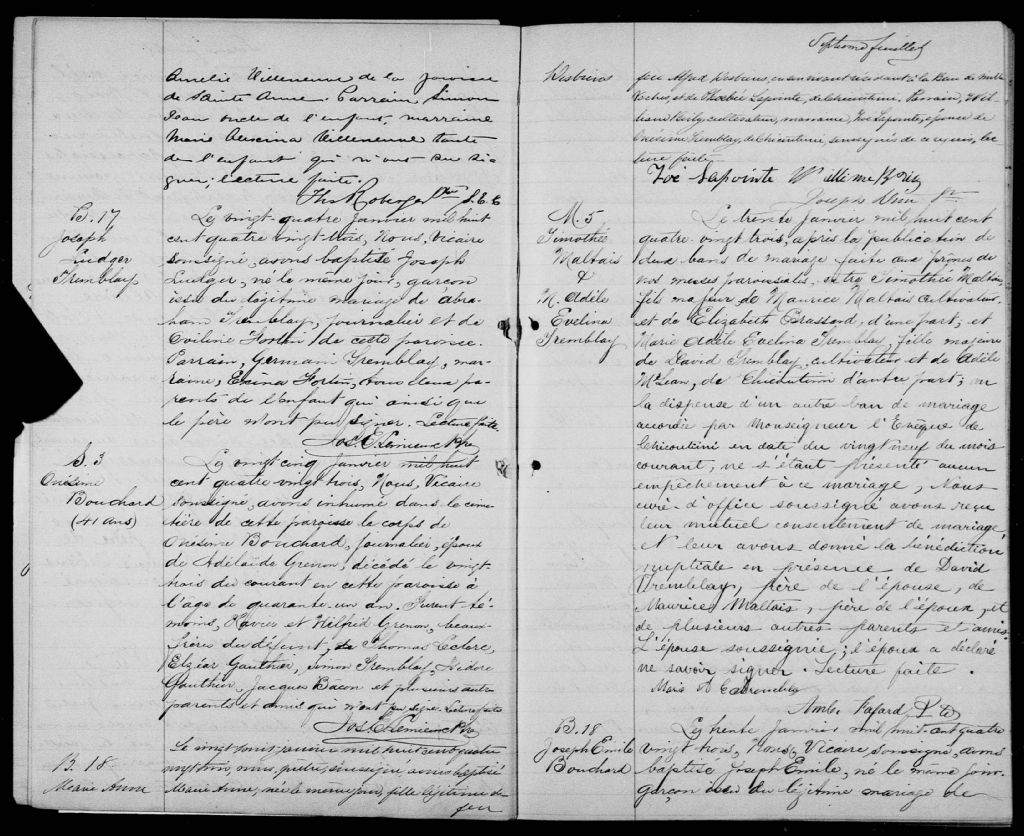 Amélie Villeneuve de la paroisse
de Sainte Anne. Parrain, Simon
Jean oncle de l'enfant, marraine
Marie Villeneuve tante
de l'enfant qui n'ont su si-
gner; lecture faite.
Ths Roberge Ptre S.C.E
B. 17
Joseph
Ludger
Tremblay
Le vingt-quatre janvier mil huit
cent quatre vingt-trois, Nous, Vicaire
soussigné, avons baptisé Joseph
Ludger, né le même jour, garçon
issu du légitime mariage de Abra-
ham Tremblay, journalier et de
Eveline Fortin de cette paroisse.
Parrain, Germain Tremblay, mar-
raine, Exina Fortin, tous deux pa-
rents de l'enfant qui ainsi que
le père n'ont pu signer. Lecture faite.
Jos. E. Lemieux Ptre
S. 3
Onésime
Bouchard
(41 ans)
Le vingt cinq janvier mil huit
cent quatre vingt trois, Nous, Vicaire
soussigné, avons inhumé dans le cime-
tière de cette paroisse le corps de
Onésime Bouchard, journalier, époux
de Adélaïde Grenon, décédé le vingt-
trois du courant en cette paroisse à
l'âge de quarante-un an. Furent té-
moins, Xavier et Wilfrid Grenon, beaux-
frères du défunt, Thomas Leclerc,
Elzéar Gauthier, Simon Tremblay, Isidore
Gauthier, Jacques Bacon et plusieurs autres
parents et amis qui n'ont pu signer. Lecture faite
Jos. E. Lemieux Ptre
B. 18
Marie Anne
Le vingt janvier mil huit cent quatre
vingt trois, nous, prêtre, soussigné avons baptisé
Marie Anne, née le même jour, fille légitime de
feu
Septième feuillet
Desbiens
feu Alfred Desbiens, en son vivant résidant à la Baie de Mille
Vaches, et de Phoebée Lapointe, de Chicoutimi, Parrain, Wil-
liam cultivateur, marraine, Zoé Lapointe, épouse de
Onésime Tremblay, de Chicoutimi, soussignés de ce requis, lec
ture faite
Zoé Lapointe
Joseph Ptre
M. 5
Timothée
Maltais
&
M. Adèle
Evelina
Tremblay
Le trente janvier mil huit cent
quatre-vingt trois, après la publication de
deux bans de mariage faite aux prônes de
nos messes paroissiales, entre Timothée Maltais,
fils majeur de Maurice Maltais cultivateur
et de Elizabeth Brassard, d'une part; et
Marie Adèle Evelina Tremblay, fille majeure
de David Tremblay, cultivateur et de Adèle
McLean, de Chicoutimi d'autre part; vu
la dispense d'un autre ban de mariage
accordée par Monseigneur l'Evêque de
Chicoutimi en date du vingt neuf du mois
courant; ne s'étant présenté aucun
empêchement à ce mariage, Nous
curé d'office soussigné avons reçu
leur mutuel consentement de mariage
et leur avons donné la bénédiction
nuptiale en présence de David
Tremblay, père de l'épouse, de
Maurice Maltais, père de l'époux, et
de plusieurs autres parents et amis.
L'épouse soussignée; l'époux a déclaré
ne savoir signer. Lecture faite.
Marie A E Tremblay
Amb. Fafard Ptre
B. 18
Joseph Emile
Bouchard
Le trente janvier mil huit-cent quatre
vingt trois, Nous, Vicaire, soussigné, avons
baptisé Joseph Emile, né le même jour,
garçon issu du légitime mariage de